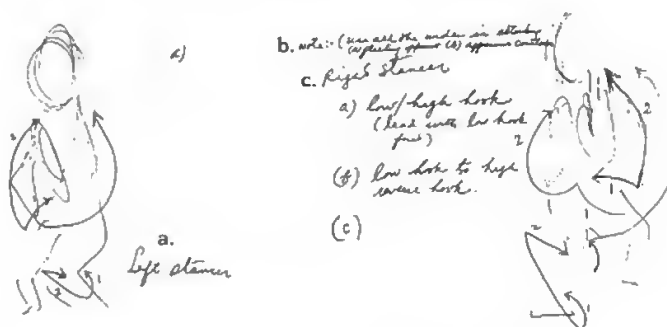 a)
b. Note:- (Use all the modes in attacking
(a) feeling opponent (b) opponent's
c. Right stancer
a) low/high hook
(lead with low hook
first)
(b) low hook to high
reverse hook.
(c)
a.
Left stancer
2
1
2
2
2
2
1
1